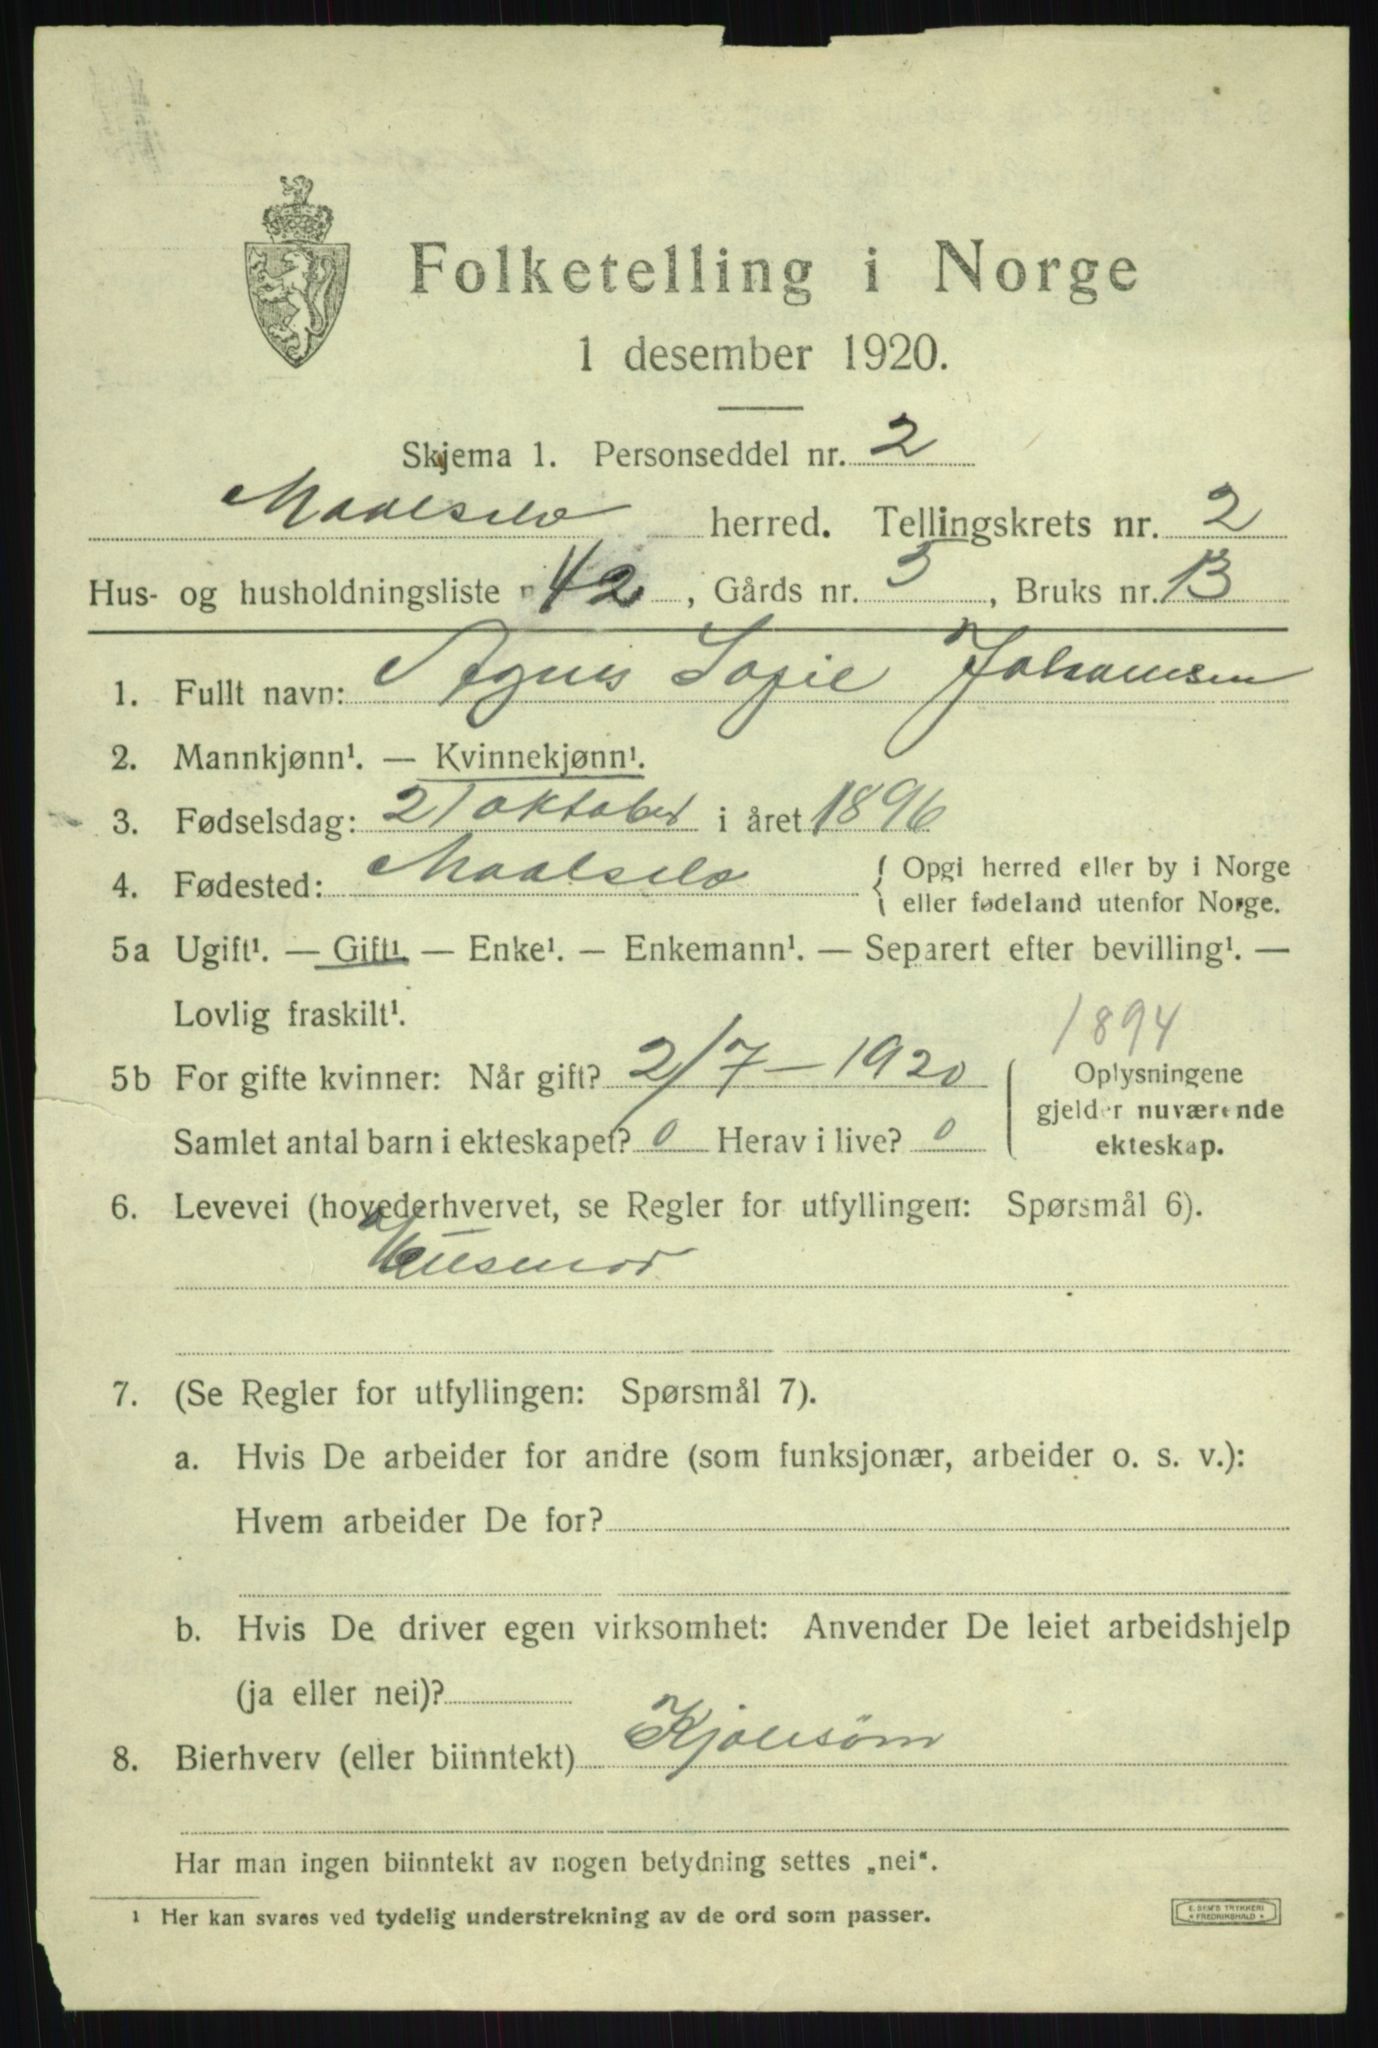 Folketelling i Norge
1 desember 1920.
Skjema 1. Personseddel nr. 2
Maalselv herred. Tellingskrets nr. 2
Hus- og husholdningsliste 42, Gårds nr. 3, Bruks nr. 13
1. Fullt navn: Agnes Sofie Johansen
2. Mannkjønn¹. — Kvinnekjønn¹.
3. Fødselsdag: 21 oktober i året 1896
4. Fødested: Maalselv { Opgi herred eller by i Norge
eller fødeland utenfor Norge.
5a Ugift¹. — Gift¹ — Enke¹. — Enkemann¹. — Separert efter bevilling¹. —
Lovlig fraskilt¹.
1894
5b For gifte kvinner: Når gift? 2/7 - 1920
Samlet antal barn i ekteskapet? 0 Herav i live? 0
Oplysningene
gjelder nuværende
ekteskap.
6. Levevei (hovederhvervet, se Regler for utfyllingen: Spørsmål 6).
Husmor
7. (Se Regler for utfyllingen: Spørsmål 7).
a. Hvis De arbeider for andre (som funksjonær, arbeider o. s. v.):
Hvem arbeider De for?
b. Hvis De driver egen virksomhet: Anvender De leiet arbeidshjelp
(ja eller nei)?
8. Bierhverv (eller biinntekt) Kjolesøm
Har man ingen biinntekt av nogen betydning settes „nei“.
¹ Her kan svares ved tydelig understrekning av de ord som passer.
E. SEM'S TRYKKERI
* FREDRIKSHALD *